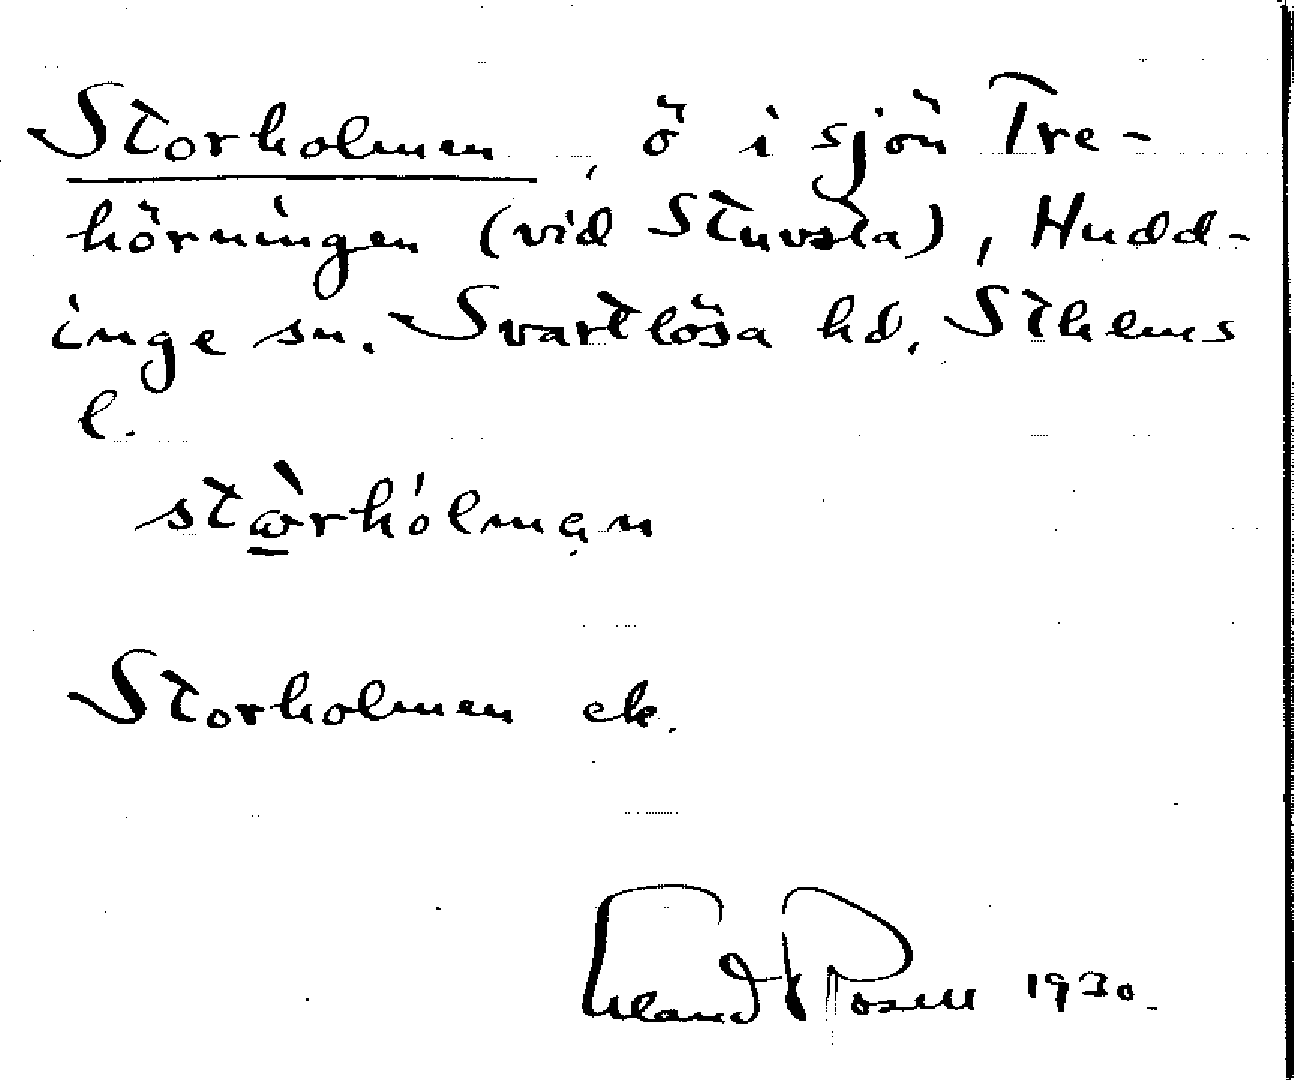 Storholmen, ö i sjön Tre-
hörningen (vid Stuvsta), Hudd-
inge sn. Svartlösa hd, Sthems
l.
stὼ̲rhólmạn
Storholmen ek.
Erland Rosell 1930.